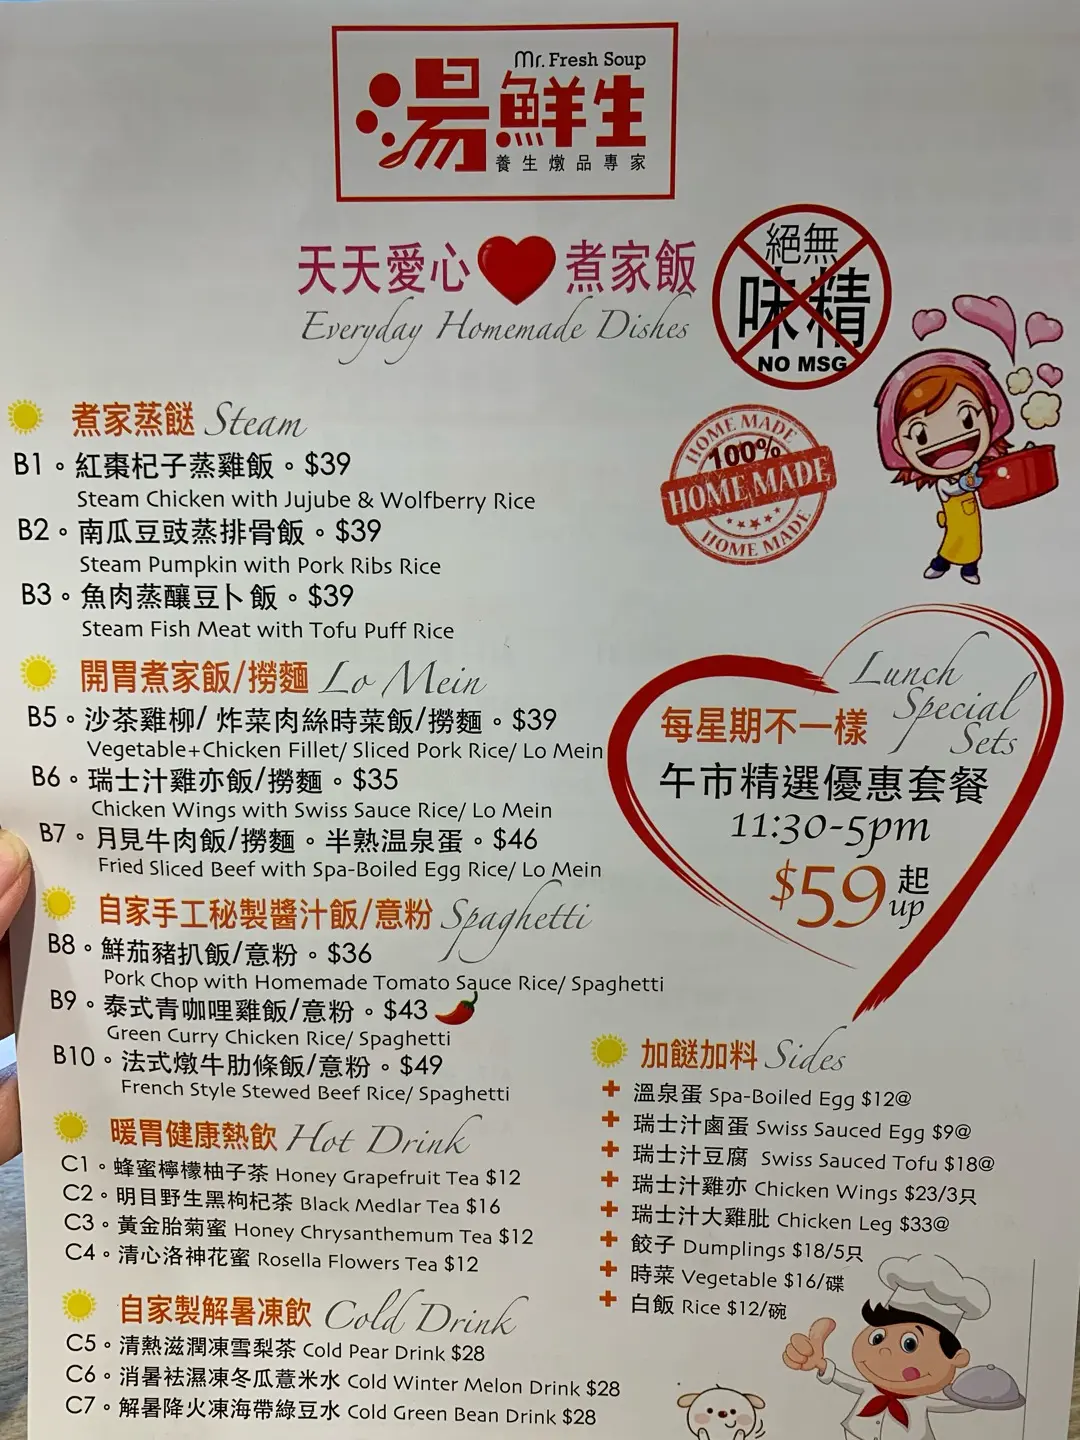 Mr. Fresh Soup
湯鮮生
養生燉品專家
天天愛心 煮家飯
Everyday Homemade Dishes
絕無
味精
NO MSG
HOME MADE
100%
HOME MADE
HOME MADE
煮家蒸餸 Steam
B1。紅棗杞子蒸雞飯。$39
Steam Chicken with Jujube & Wolfberry Rice
B2。南瓜豆豉蒸排骨飯。$39
Steam Pumpkin with Pork Ribs Rice
B3。魚肉蒸釀豆卜飯。$39
Steam Fish Meat with Tofu Puff Rice
開胃煮家飯/撈麵 Lo Mein
B5。沙茶雞柳/ 炸菜肉絲時菜飯/撈麵。$39
Vegetable+Chicken Fillet/ Sliced Pork Rice/ Lo Mein
B6。瑞士汁雞亦飯/撈麵。$35
Chicken Wings with Swiss Sauce Rice/ Lo Mein
B7。月見牛肉飯/撈麵。半熟溫泉蛋。$46
Fried Sliced Beef with Spa-Boiled Egg Rice/ Lo Mein
自家手工秘製醬汁飯/意粉 Spaghetti
B8。鮮茄豬扒飯/意粉。$36
Pork Chop with Homemade Tomato Sauce Rice/ Spaghetti
B9。泰式青咖哩雞飯/意粉。$43
Green Curry Chicken Rice/ Spaghetti
B10。法式燉牛肋條飯/意粉。$49
French Style Stewed Beef Rice/ Spaghetti
暖胃健康熱飲 Hot Drink
C1。蜂蜜檸檬柚子茶 Honey Grapefruit Tea $12
C2。明目野生黑枸杞茶 Black Medlar Tea $16
C3。黃金胎菊蜜 Honey Chrysanthemum Tea $12
C4。清心洛神花蜜 Rosella Flowers Tea $12
自家製解暑凍飲 Cold Drink
C5。清熱滋潤凍雪梨茶 Cold Pear Drink $28
C6。消暑袪濕凍冬瓜薏米水 Cold Winter Melon Drink $28
C7。解暑降火凍海帶綠豆水 Cold Green Bean Drink $28
Lunch Special Sets
每星期不一樣
午市精選優惠套餐
11:30-5pm
$59起
up
加餸加料 Sides
溫泉蛋 Spa-Boiled Egg $12@
瑞士汁鹵蛋 Swiss Sauced Egg $9@
瑞士汁豆腐 Swiss Sauced Tofu $18@
瑞士汁雞亦 Chicken Wings $23/3只
瑞士汁大雞肶 Chicken Leg $33@
餃子 Dumplings $18/5只
時菜 Vegetable $16/碟
白飯 Rice $12/碗